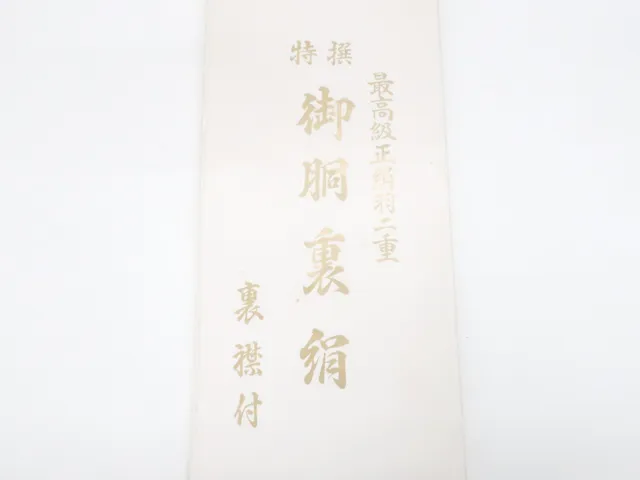 特撰
最高級正絹羽二重
御胴裏絹
裏襟付